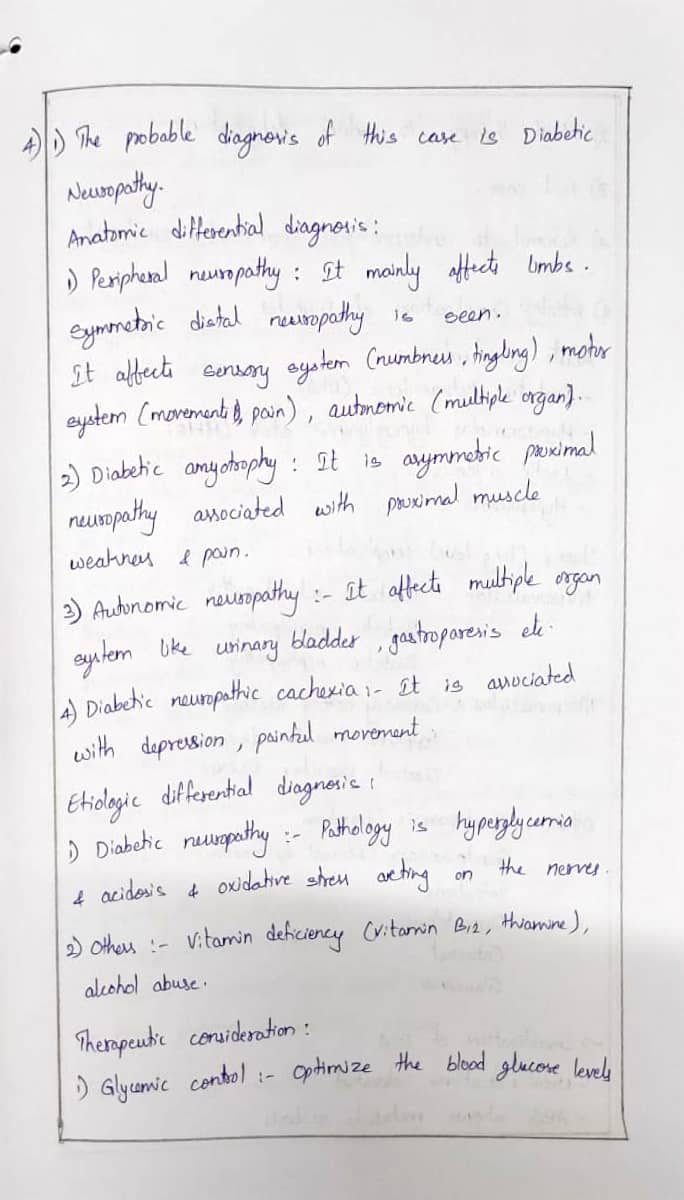 4) 1) The probable diagnosis of this case is Diabetic
Neuropathy.
Anatomic differential diagnosis :
1) Peripheral neuropathy : It mainly affects limbs .
Symmetric distal neuropathy is seen.
It affects sensory system (numbness, tingling) , motor
system (movement & pain) , autonomic (multiple organ).
2) Diabetic amyotrophy : It is asymmetric proximal
neuropathy associated with proximal muscle
weakness & pain.
3) Autonomic neuropathy :- It affects multiple organ
system like urinary bladder , gastroparesis etc.
4) Diabetic neuropathic cachexia :- It is associated
with depression , painful movement
Etiologic differential diagnosis :
1) Diabetic neuropathy :- Pathology is hyperglycemia
& acidosis & oxidative stress acting on the nerves.
2) Others :- Vitamin deficiency (vitamin B12, thiamine),
alcohol abuse.
Therapeutic consideration :
1) Glycemic control :- Optimize the blood glucose levels